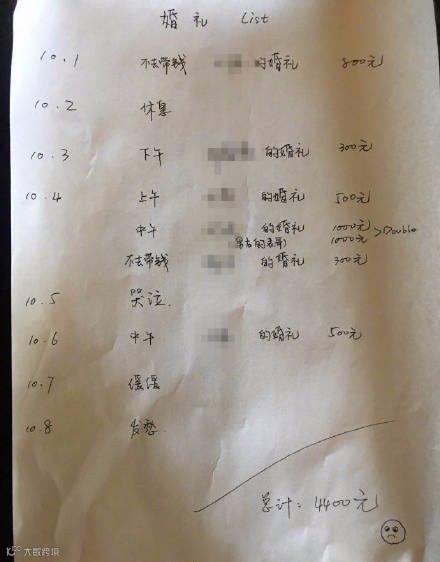 婚礼 List
10.1 不去带钱 的婚礼 800元
10.2 休息
10.3 下午 的婚礼 300元
10.4 上午 的婚礼 500元
中午 的婚礼 1000元
男友的表哥) 1000元 >Double
不去带钱 的婚礼 300元
10.5 哭泣.
10.6 中午 的婚礼 500元
10.7 缓缓
10.8 发愁.
总计: 4400元
大数跨境